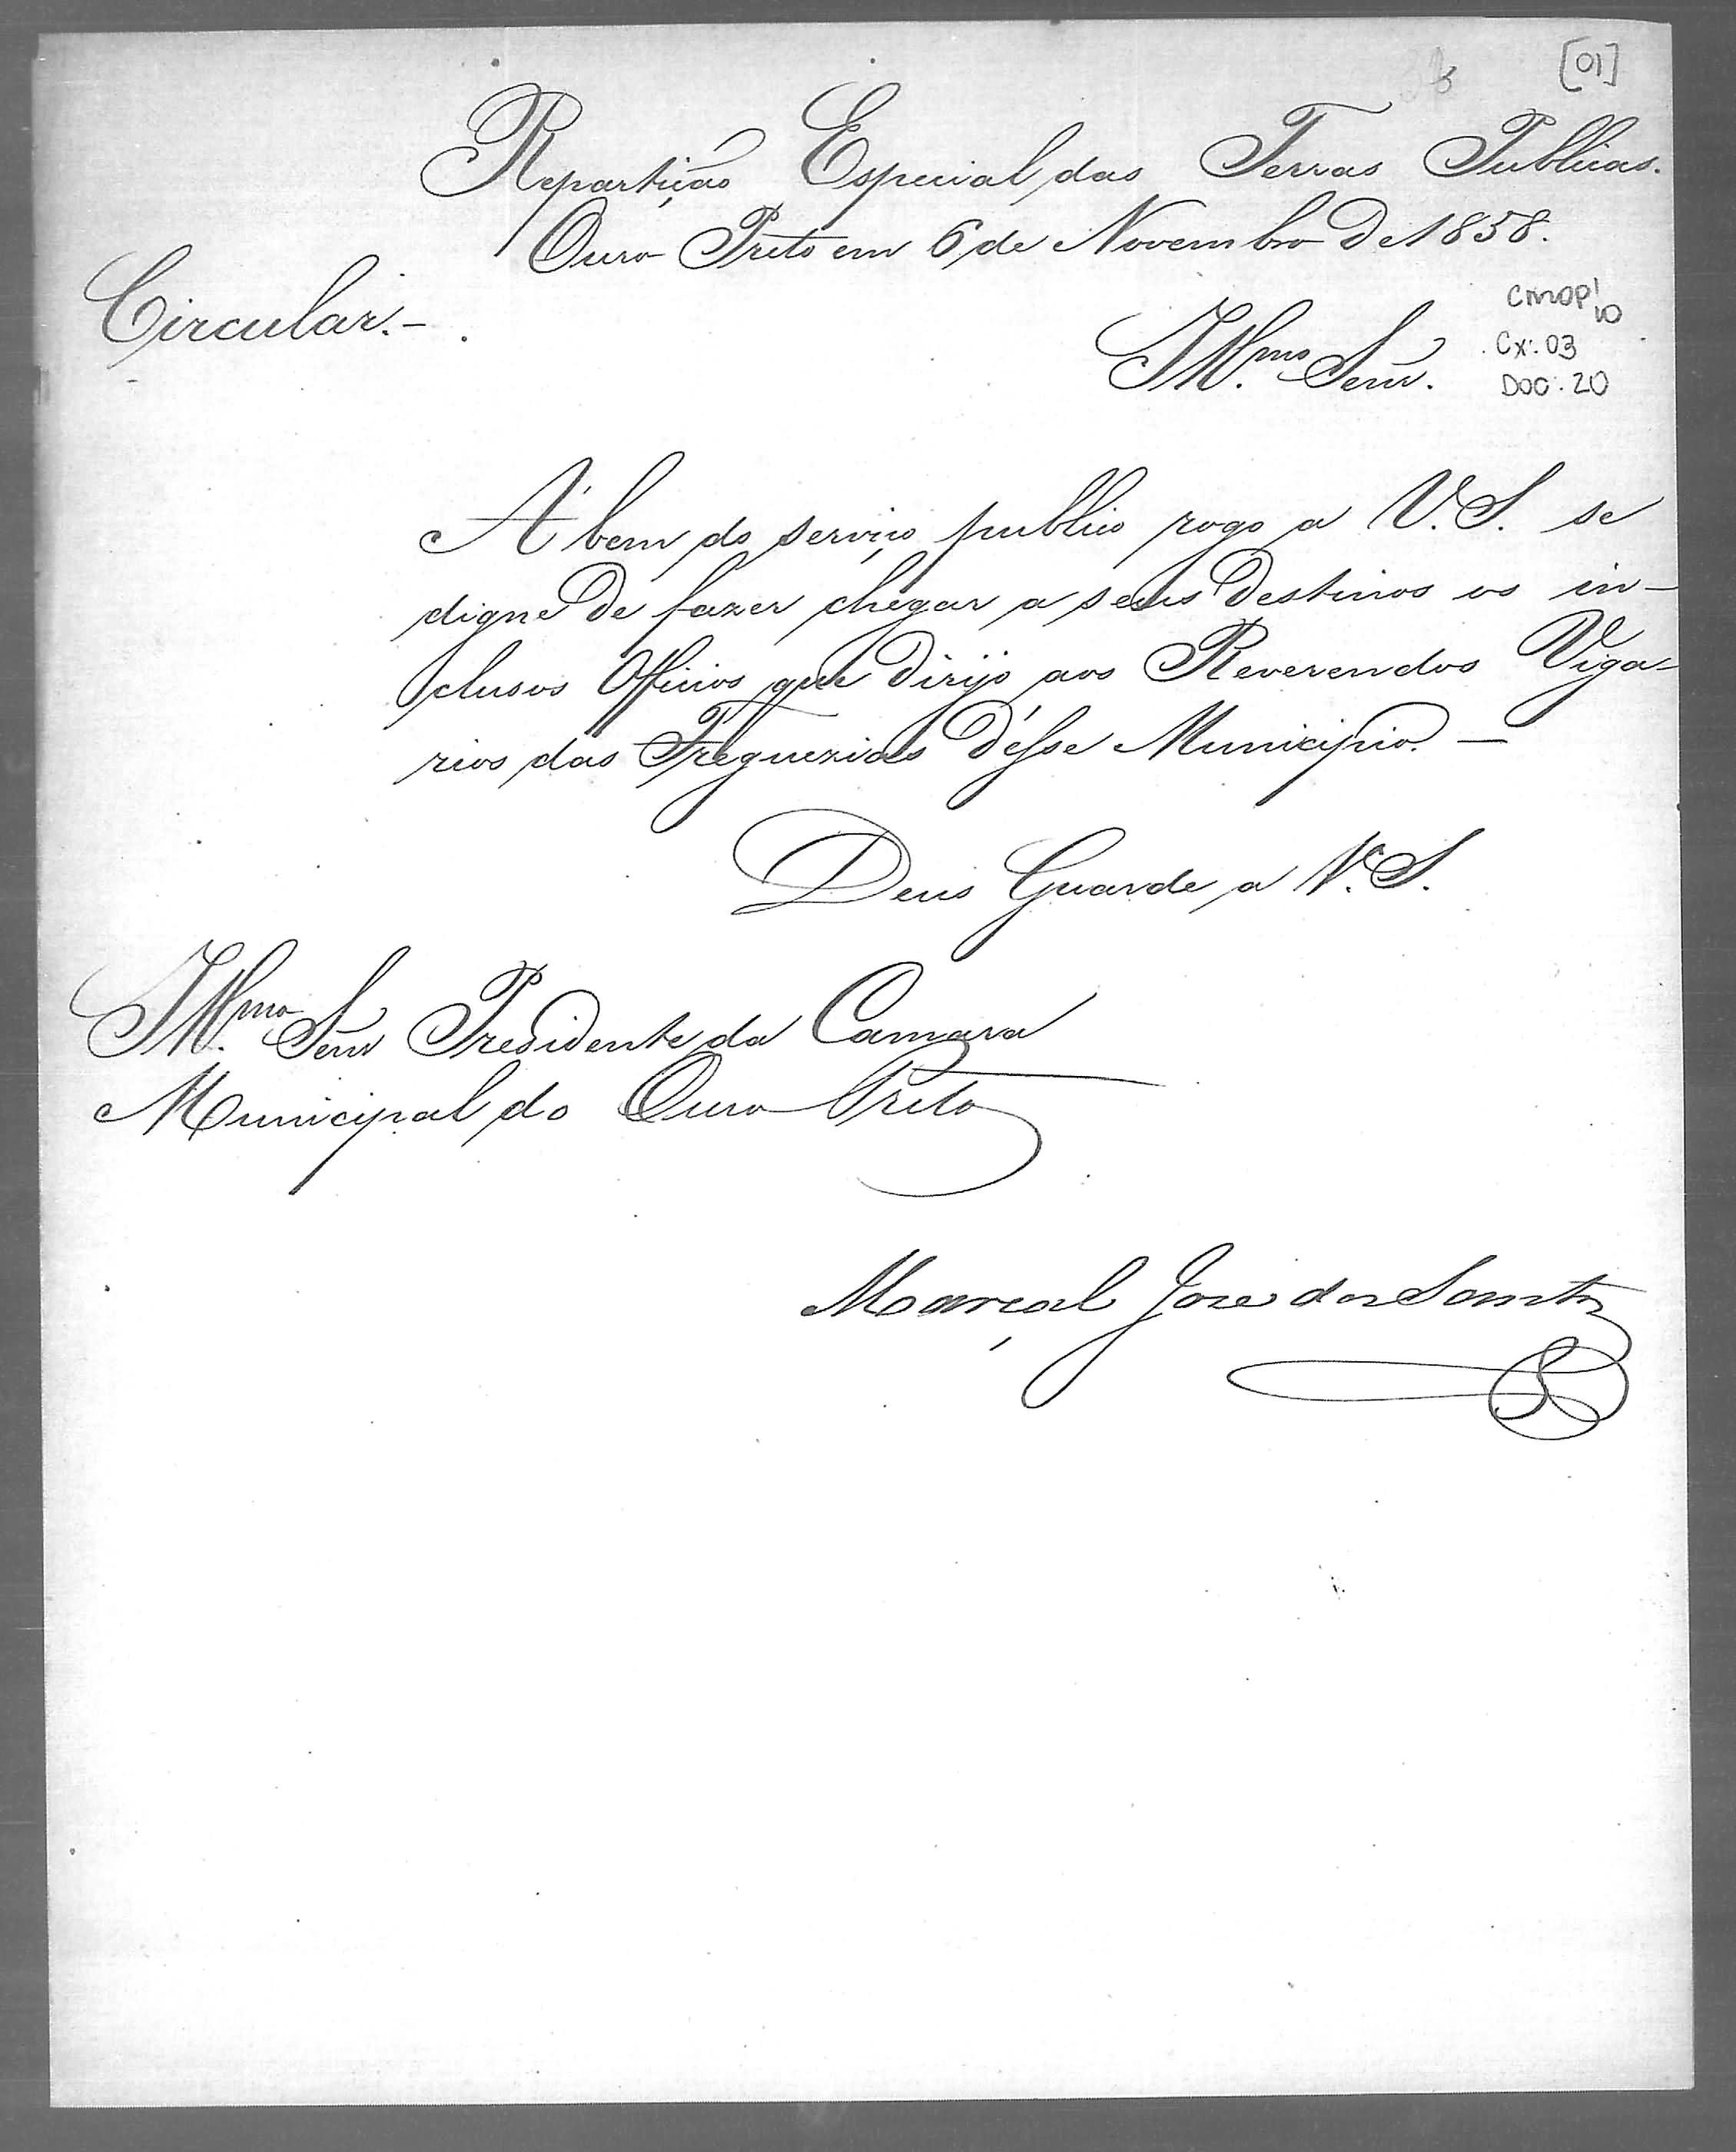 [01]
Repartição Especial das Terras Publicas.
Ouro Preto em 6 de Novembro de 1858.
Circular.-
Illmo. Senr.
CMOP/10
Cx: 03
DOC: 20
A' bem do serviço publico rogo a V. S. se
digne de fazer chegar a seus destinos os in-
clusos Officios que dirijo aos Reverendos Viga-
rios das Freguezias d'esse Municipio. —
Deus Guarde a V. S.
Illmo. Senr Presidente da Camara
Municipal do Ouro Preto
Marçal José dos Santos